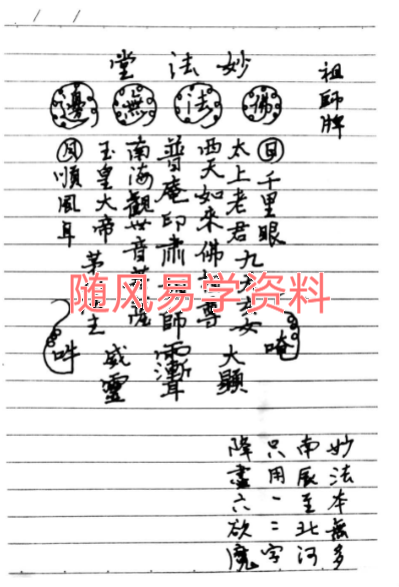 祖師牌
妙法堂
佛法無邊
日千里眼
太上老君九天玄女
西天如來佛 尊
普庵印肅 師
南海觀世音菩薩
玉皇大帝
月順風耳
唵
大顯
威靈
吽
随风易学资料
妙法本無多
南辰至北河
只用一二字
降盡六欲魔